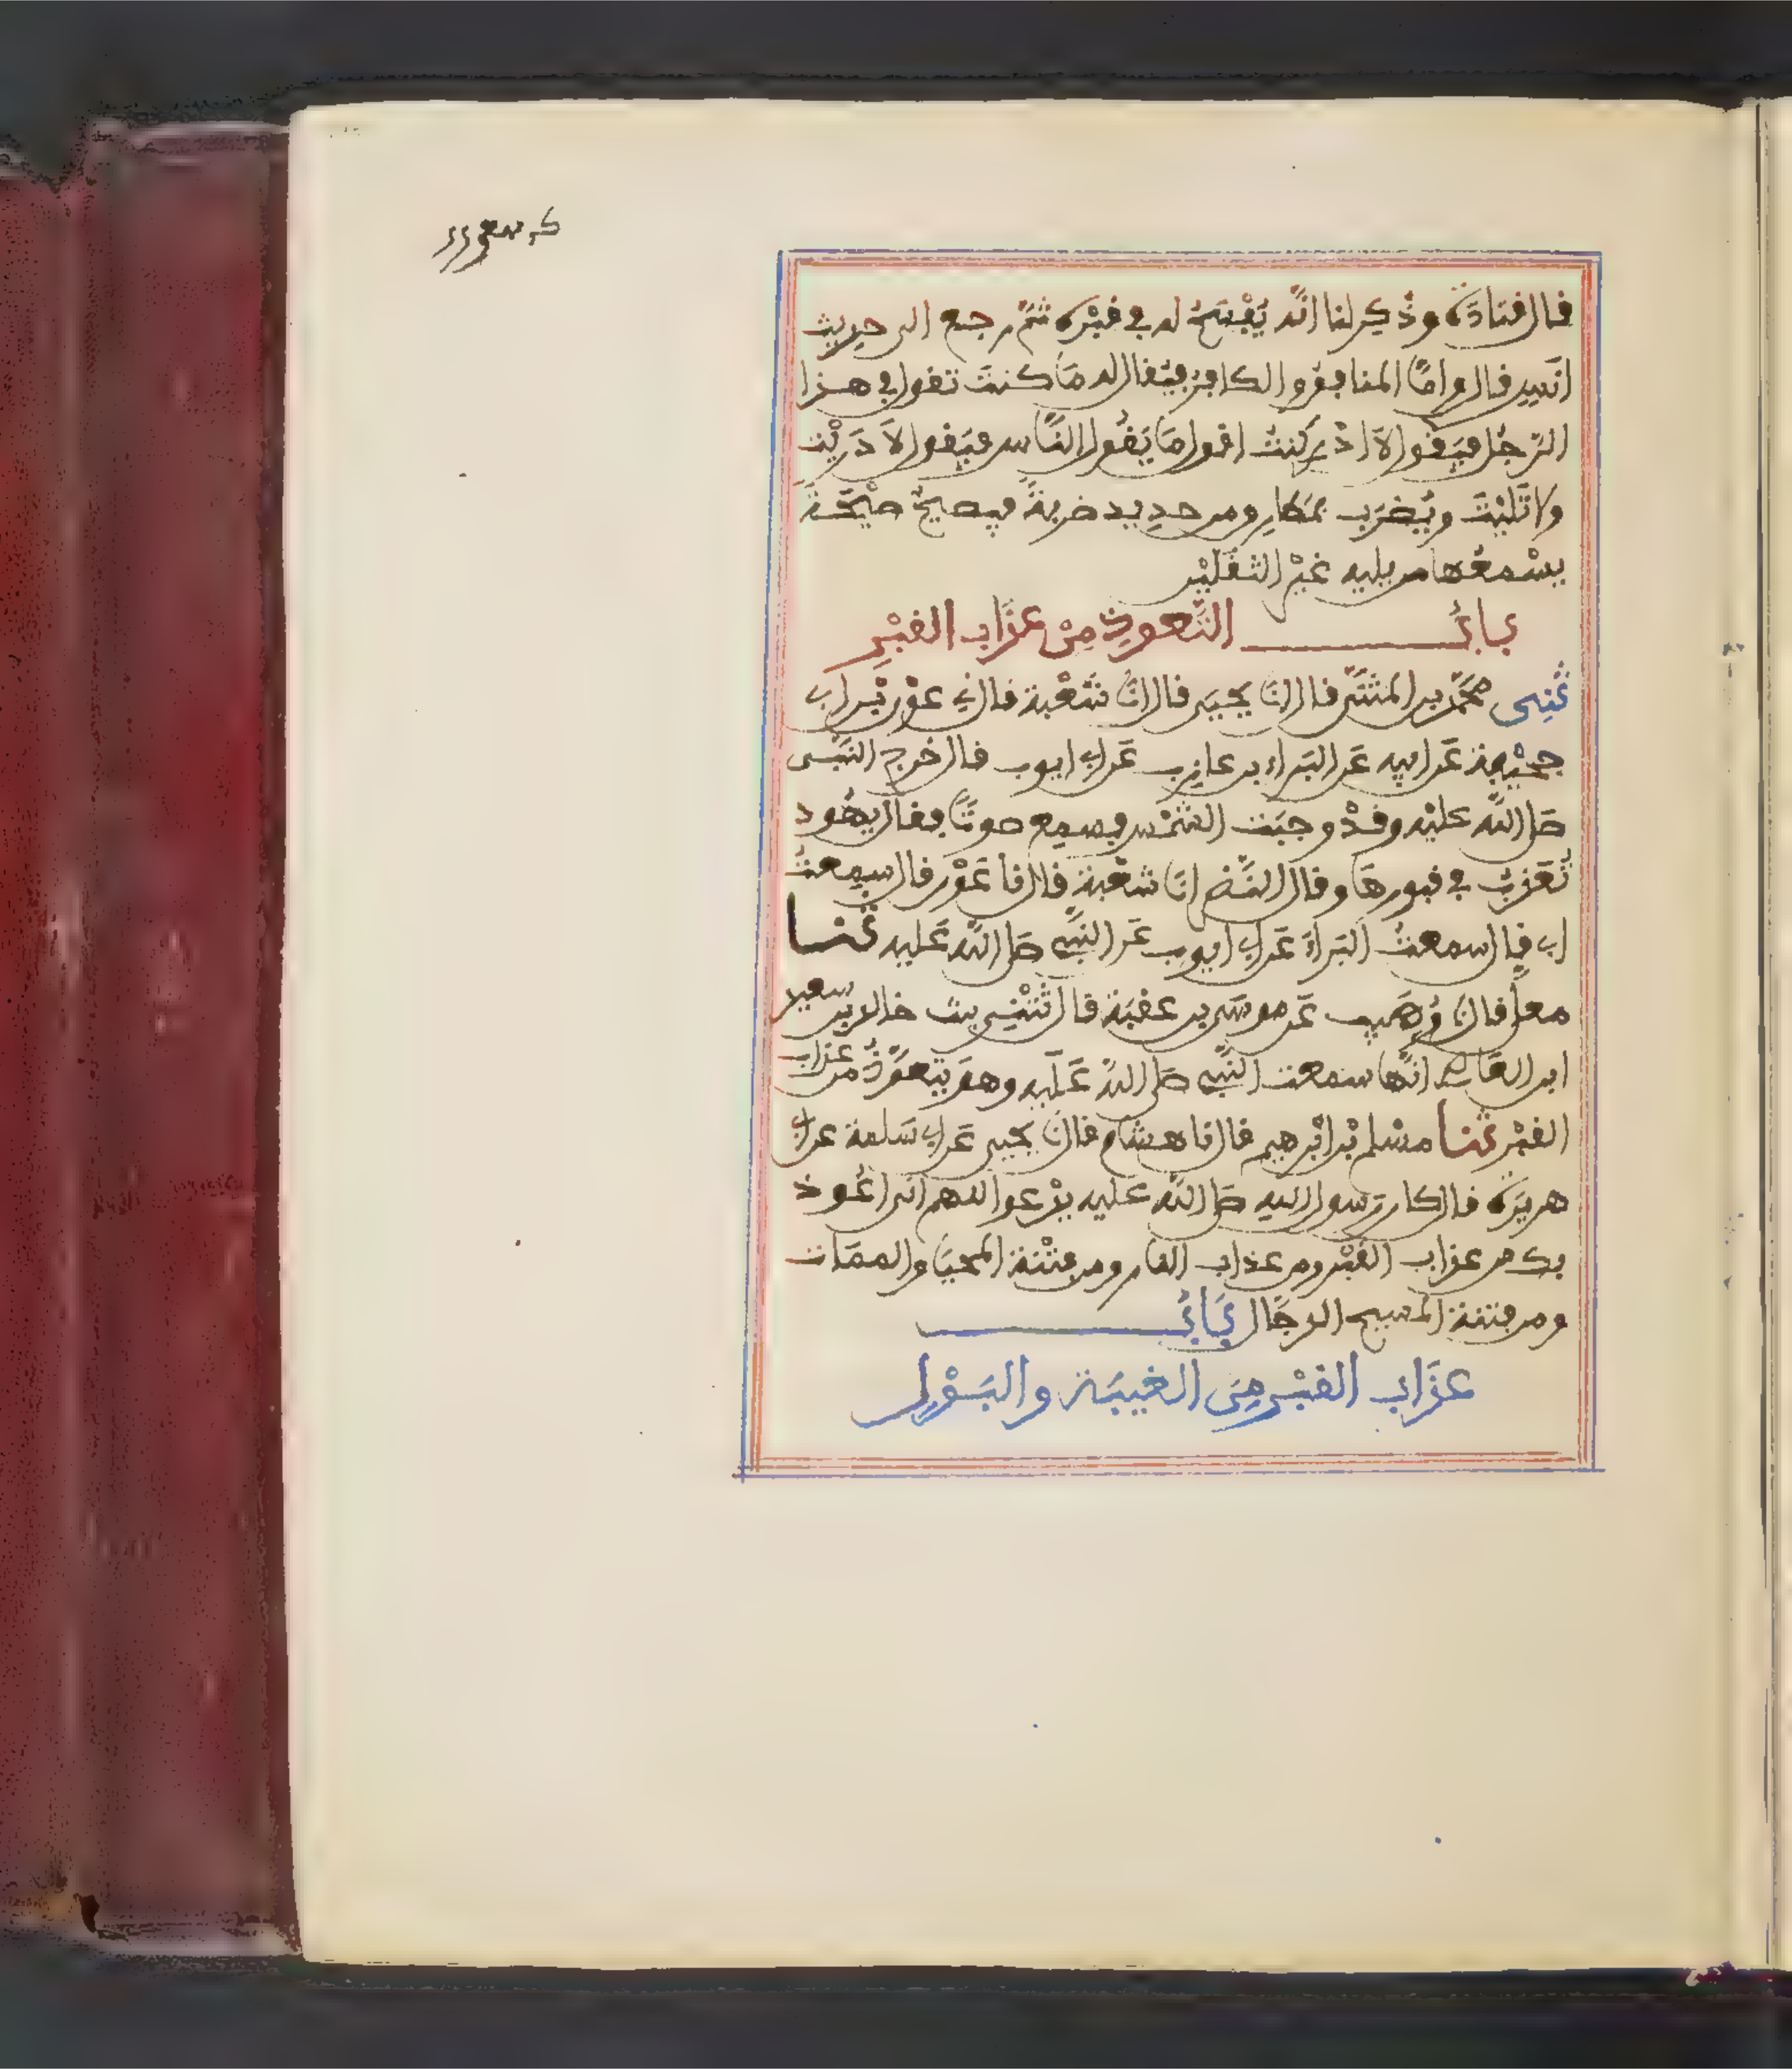 قال قتادة وذُكِر لنا انّه يُفْسَحُ له في قبْره ثمّ رجع الى حديث
انَسٍ قال وامّا المنافقُ والكافِرُ فيُقال له مَا كنتَ تقول في هذا
الرّجُل فيَقول لَا ادْرِي كُنتُ اقول مَا يَقُول النّاس فيَقول لَا دَرَيْت
ولا تَليْتَ ويُضْرَب بمَطارق من حديد ضربةً فيصيحُ صيْحَةً
يسْمعُها من يليه غيْر الثقليْن
بابُ التّعوذ مِنْ عذَاب القبْرِ
ثنِى محمّد بن المثنّى قال انَا يحيى قال انَا شُعْبة قال ني عوْن بْن ابي
جُحَيْفة عَن ابيه عَن البَراء بن عازب عَن ابي ايوب قال خرج النبّى
صلى اللّه عليْه وقدْ وجبَت الشّمْس فسمِع صوتًا فقال يهُود
تُعَذّبُ في قبورهَا وقال النّضر انَا شعْبة قال نا عَوْن قال سمِعتُ
ابي قال سمعتُ البَراءَ عَن ابي ايوب عَن النبّي صلى اللّه عَليه ثنا
معلّى قال نَا وُهَيب عَن موسَى بن عقبَة قال ثتْنِي بنت خالد بن سعيد
ابن العَاص انّها سمعت النبّي صلى اللّه عَليه وهو يتعوّذُ من عذاب
القبْر ثنا مسْلم بْن ابْرهيم قال نا هشام قال نَا يحيى عَن ابي سَلمة عن ابي
هريرَة قال كان رَسول اللّهِ صلى اللّه عليه يدْعوا اللهم انى اعُوذ
بك من عذاب القبْر ومن عذاب النار ومن فتْنة المحيَا والممَات
ومن فتنة المسيح الدجّال بَابُ
عذَاب القبْر مِنَ الغيبَة والبَوْلِ